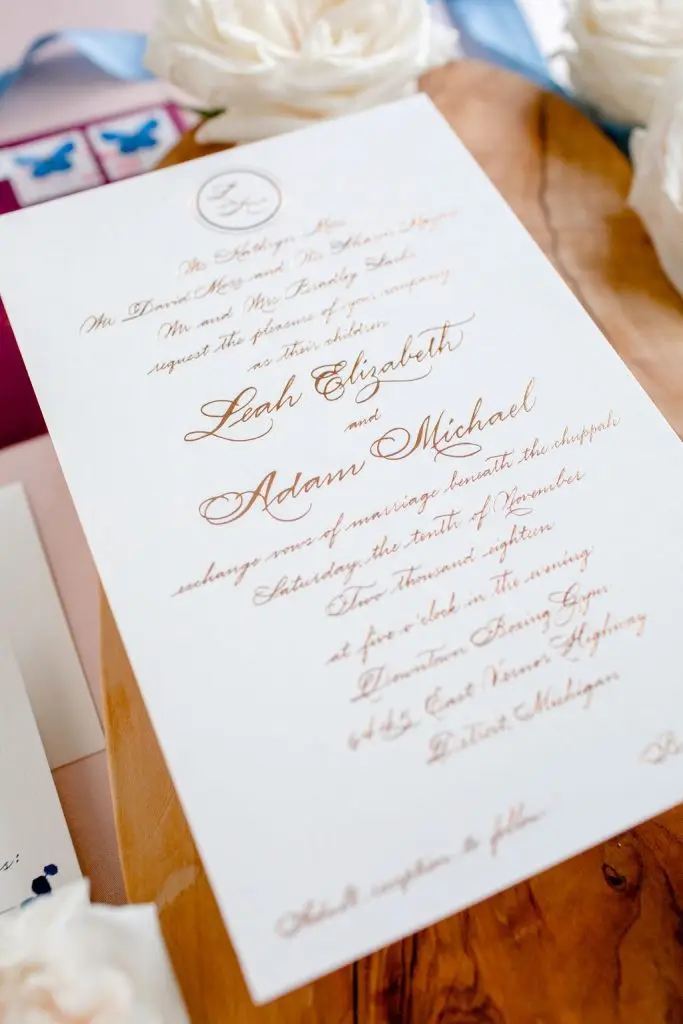 Ms Kathryn
Mr David Moss and Ms Sharon
Mr and Mrs Bradley
request the pleasure of your company
as their children
Leah Elizabeth
and
Adam Michael
exchange vows of marriage beneath the chuppah
Saturday, the tenth of November
Two thousand eighteen
at five o'clock in the evening
Downtown Boxing Gym
6445 East Vernor Highway
Detroit, Michigan
B
Adult reception to follow
s: